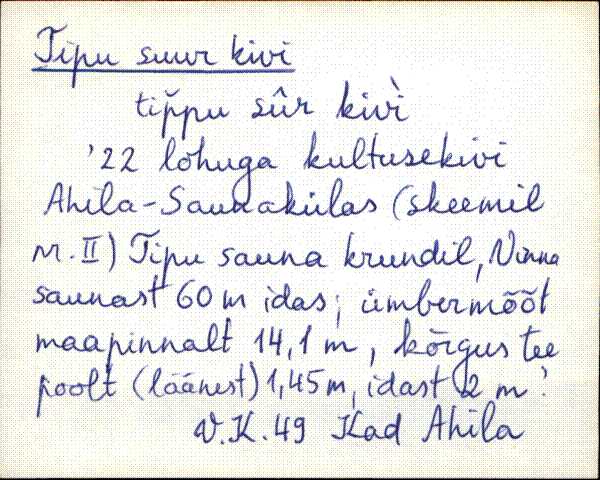 Tipu suur kivi
tip̆pu sûr kivì
'22 lohuga kultusekivi
Ahila-Saunakülas (skeemil
nr. II) Tipu sauna krundil, Ninna
saunast 60 m idas; ümbermõõt
maapinnalt 14,1 m, kõrgus tee
poolt (läänest) 1,45 m, idast 2 m'.
V.K. 49 Kad Ahila